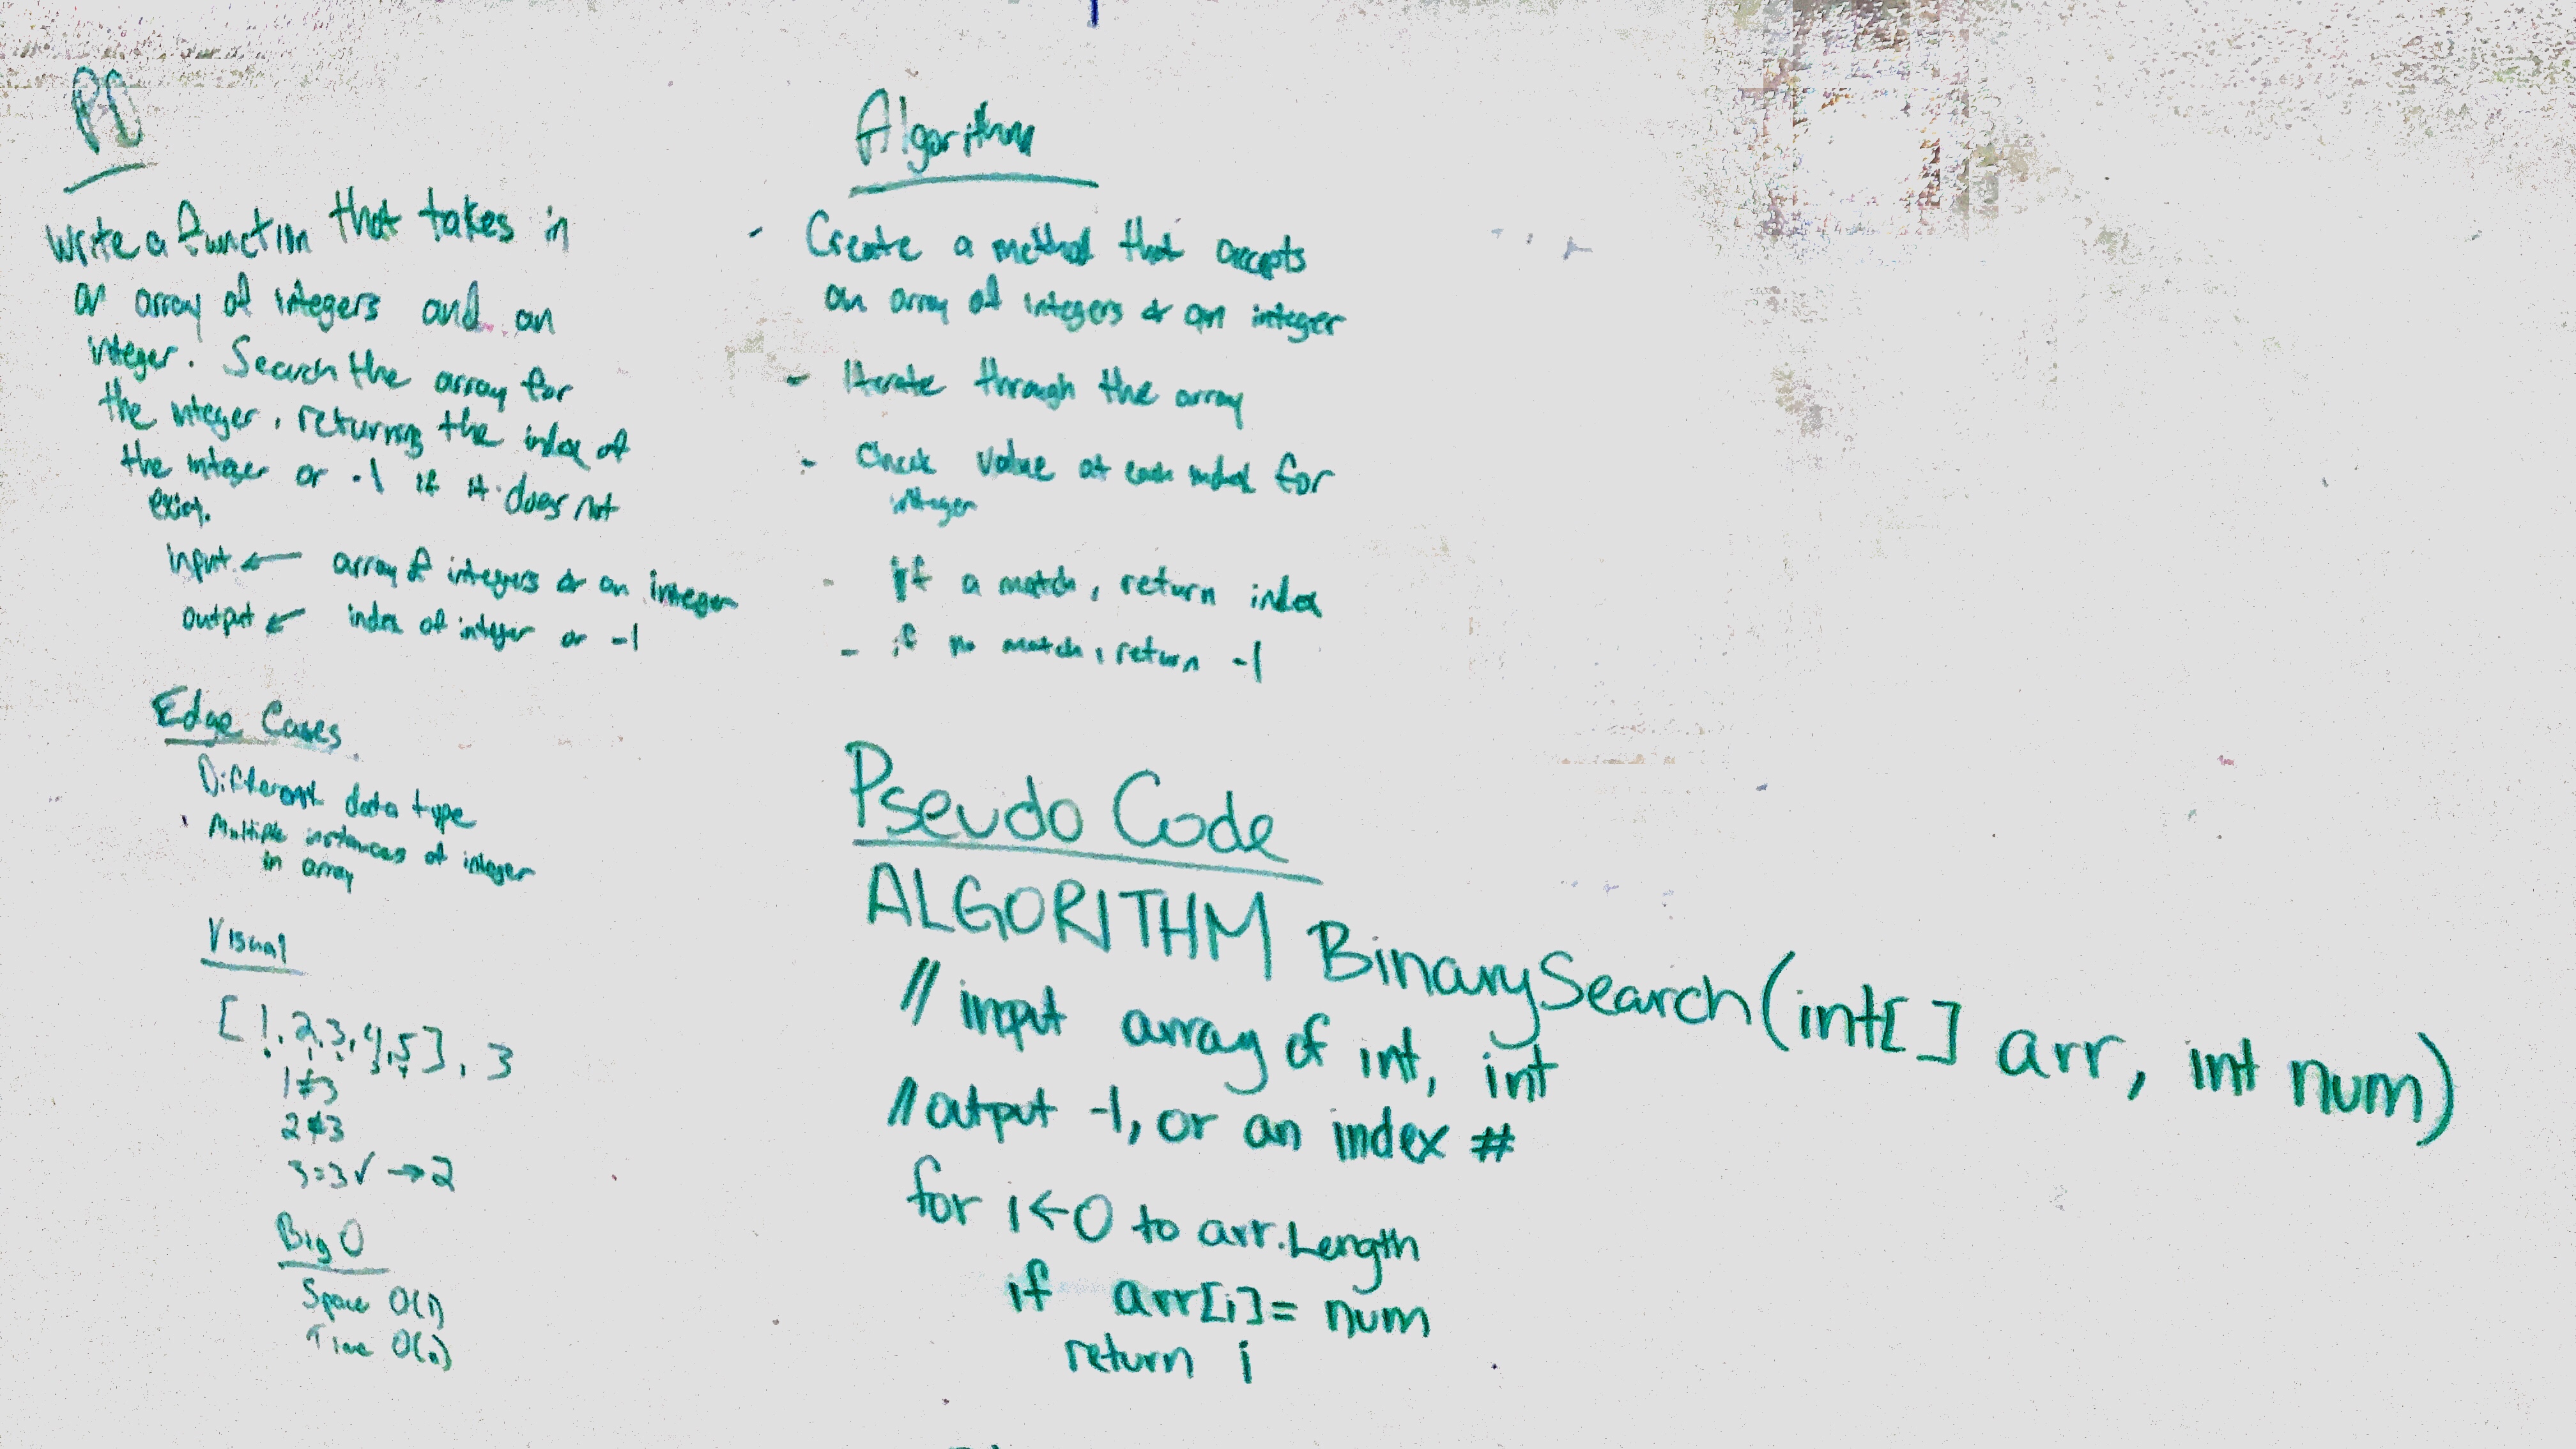 PD
Write a function that takes in
an array of integers and an
integer. Search the array for
the integer, returning the index of
the integer or -1 if it does not
exist.
input ← array of integers & an integer
output ← index of integer or -1
Edge Cases
Different data type
Multiple instances of integer
in array
Visual
[1,2,3,4,5], 3
1≠3
2≠3
3=3✓ →2
Big O
Space O(1)
Time O(n)
Algorithm
- Create a method that accepts
an array of integers & an integer
- Iterate through the array
- Check value at each index for
integer
- if a match, return index
- if no match, return -1
Pseudo Code
ALGORITHM BinarySearch(int[] arr, int num)
// input array of int, int
// output -1, or an index #
for i←0 to arr.Length
if arr[i]= num
return i